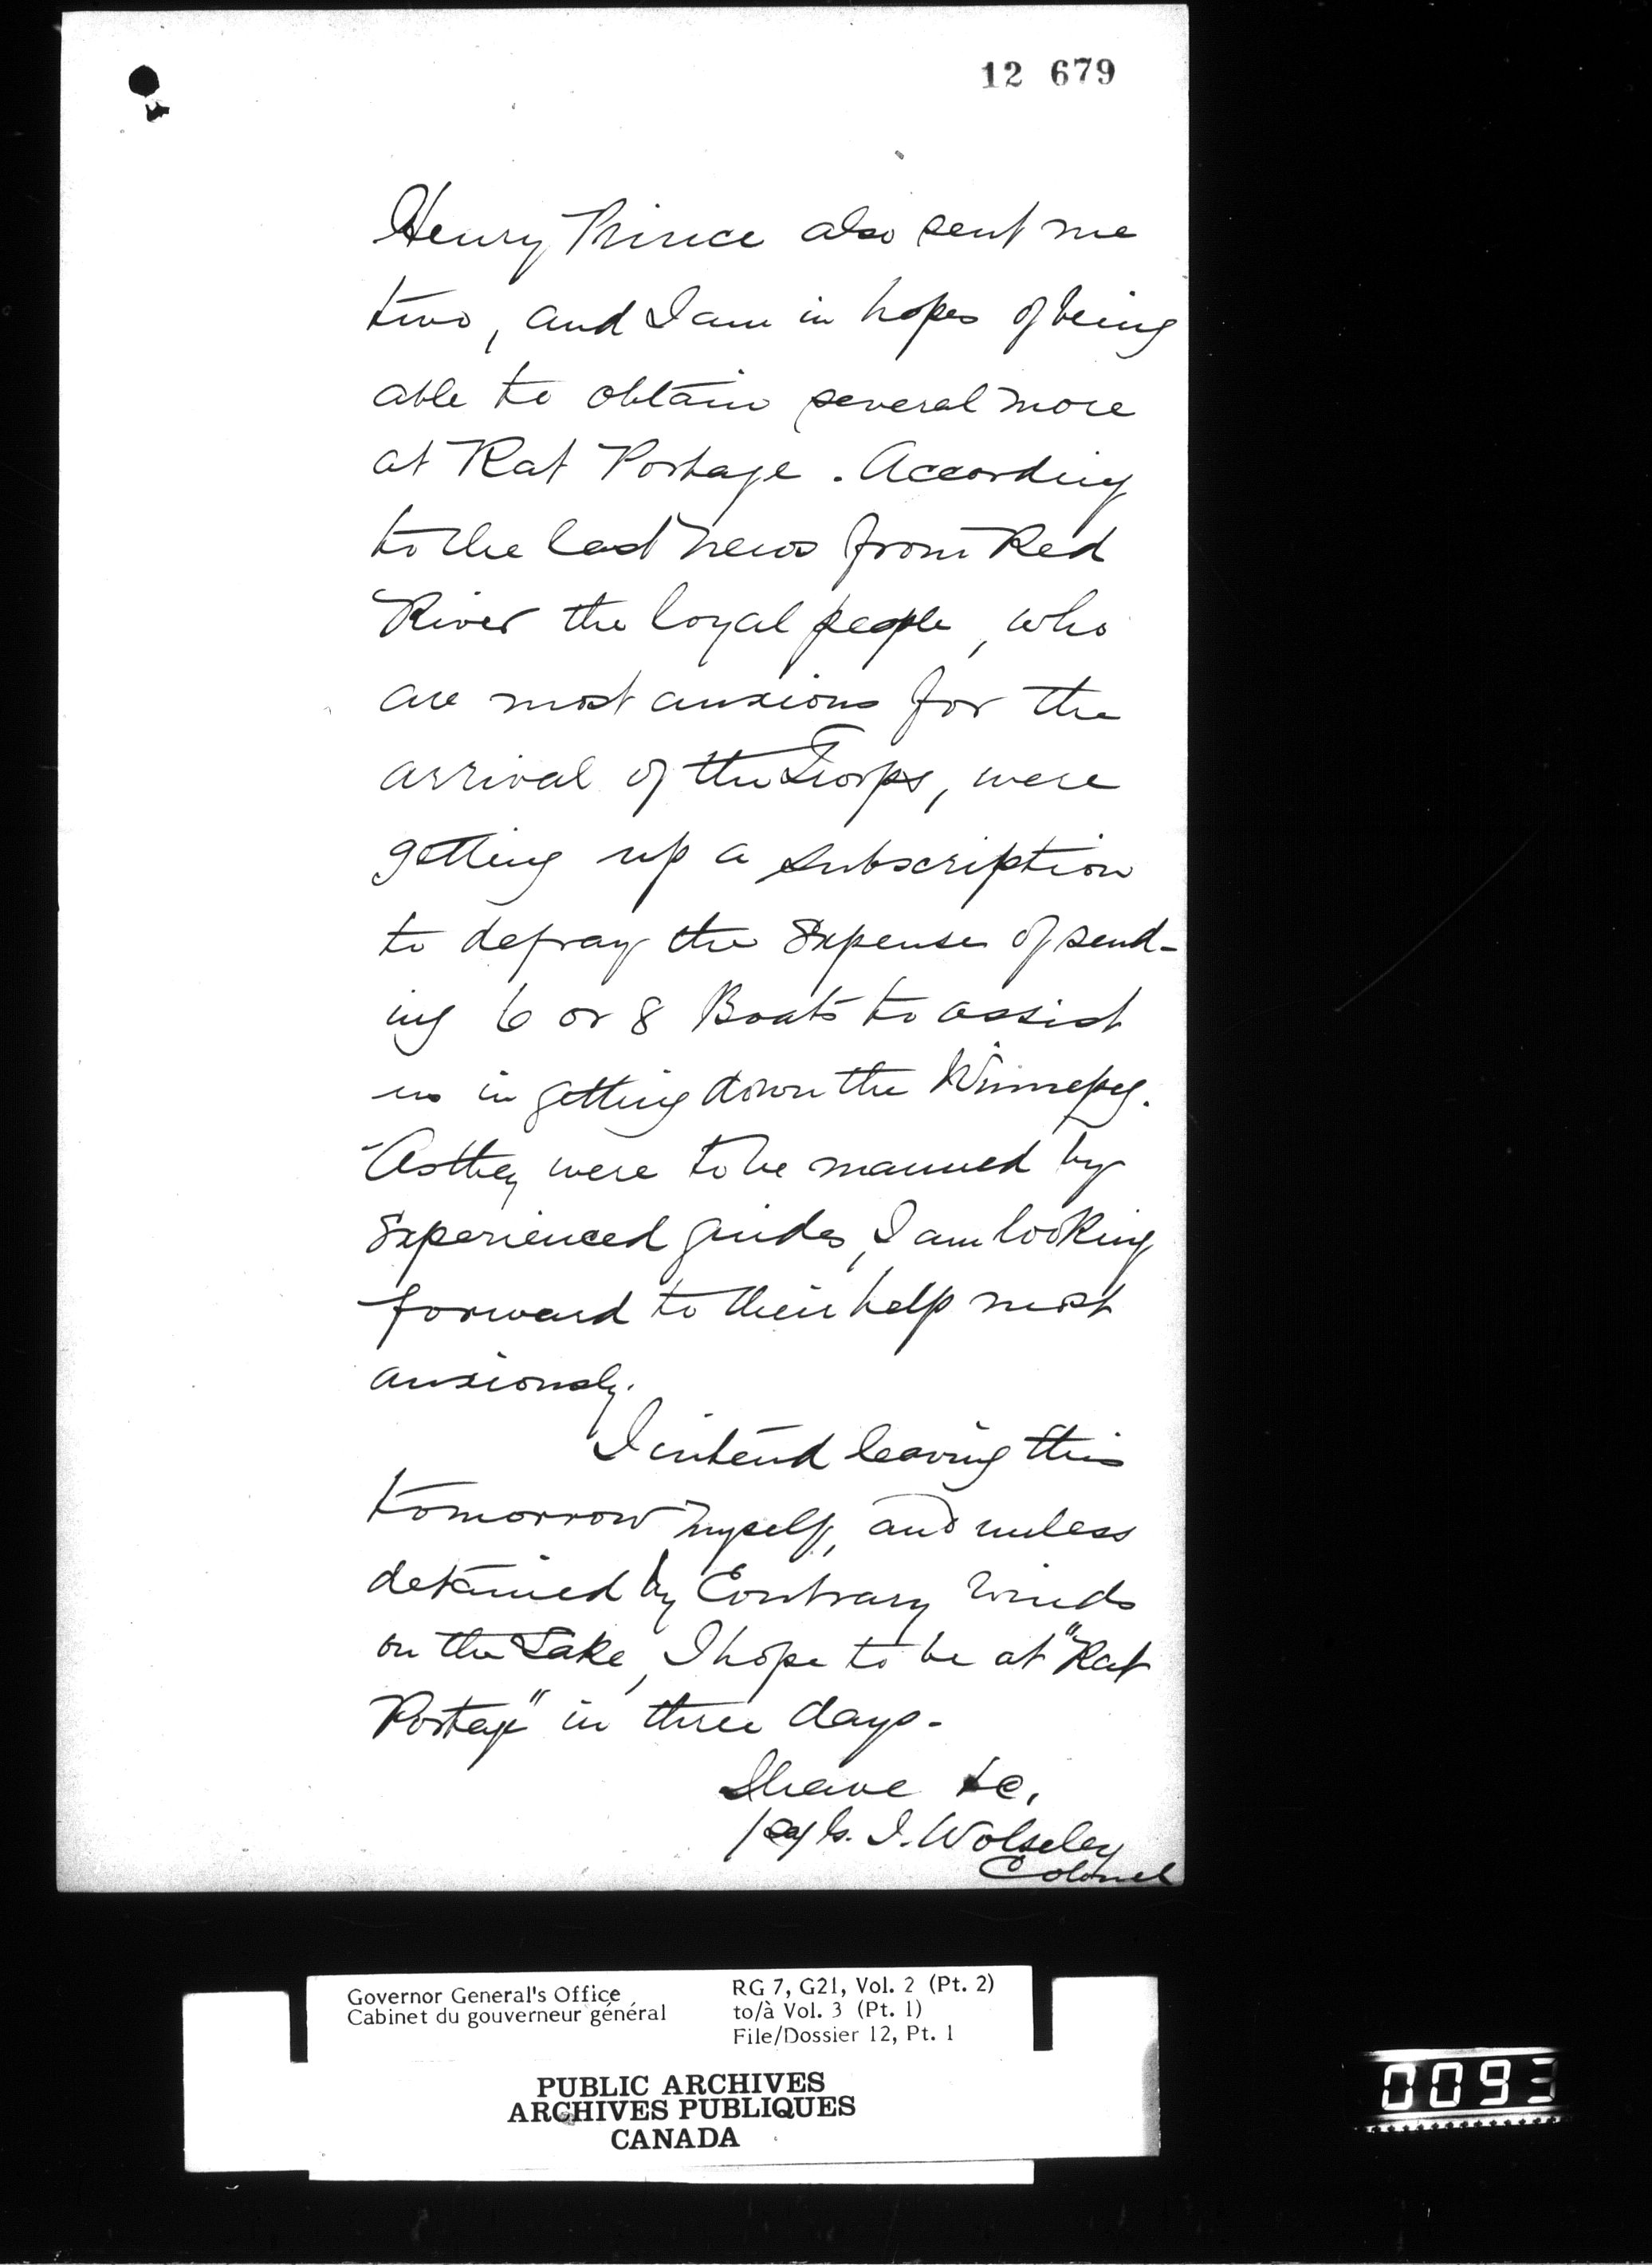 12 679
Henry Prince also sent me
two, and I am in hopes of being
able to obtain several more
at Rat Portage. According
to the last news from Red
River the loyal people, who
are most anxious for the
arrival of the Troops, were
getting up a subscription
to defray the Expense of send-
ing 6 or 8 Boats to assist
us in getting down the Winnepeg.
As they were to be manned by
Experienced guides, I am looking
forward to their help most
anxiously.
I intend leaving this
tomorrow myself, and unless
detained by Contrary winds
on the Lake, I hope to be at "Rat
Portage" in three days.
I have &c.
J. Wolseley
Colonel
Governor General's Office
Cabinet du gouverneur général
RG 7, G21, Vol. 2 (Pt. 2)
to/à Vol. 3 (Pt. 1)
File/Dossier 12, Pt. 1
PUBLIC ARCHIVES
ARCHIVES PUBLIQUES
CANADA
0093